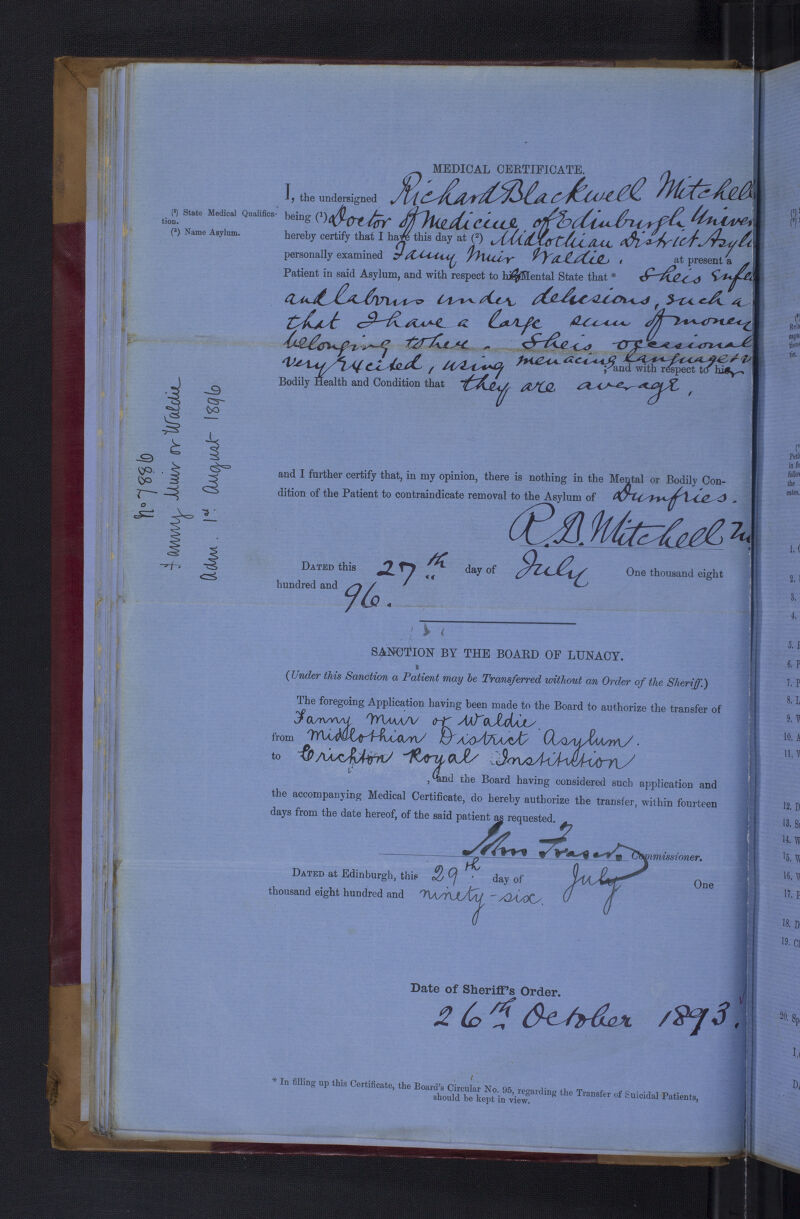 MEDICAL CERTIFICATE.
I, the undersigned Richard Blackwell Mitchell
(¹) State Medical Qualifica-
tion.
(²) Name Asylum.
being (¹) Doctor of Medicine of Edinburgh Univer
hereby certify that I have this day at (²) Midlothian District Asyl
personally examined Fanny Muir Waldie, at present a
Patient in said Asylum, and with respect to her Mental State that * She is enfe
and labours under delusions, such a
that I have a large sum of money
belonging to her. She is occasional
very excited, using menacing language
; and with respect to her
Bodily Health and Condition that they are average.
No 7886
Fanny Muir or Waldie
Adm. 1st August 1896
and I further certify that, in my opinion, there is nothing in the Mental or Bodily Con-
dition of the Patient to contraindicate removal to the Asylum of Dumfries.
R. B. Mitchell
DATED this 27th day of July One thousand eight
hundred and 96.
SANCTION BY THE BOARD OF LUNACY.
(Under this Sanction a Patient may be Transferred without an Order of the Sheriff.)
The foregoing Application having been made to the Board to authorize the transfer of
Fanny Muir or Waldie
from Midlothian District Asylum.
to Crichton Royal Institution
, and the Board having considered such application and
the accompanying Medical Certificate, do hereby authorize the transfer, within fourteen
days from the date hereof, of the said patient as requested.
John Fraser Commissioner.
DATED at Edinburgh, this 29th day of July One
thousand eight hundred and ninety-six.
Date of Sheriff's Order.
26th October 1893.
* In filling up this Certificate, the Board's Circular No. 95, regarding the Transfer of Suicidal Patients,
should be kept in view.